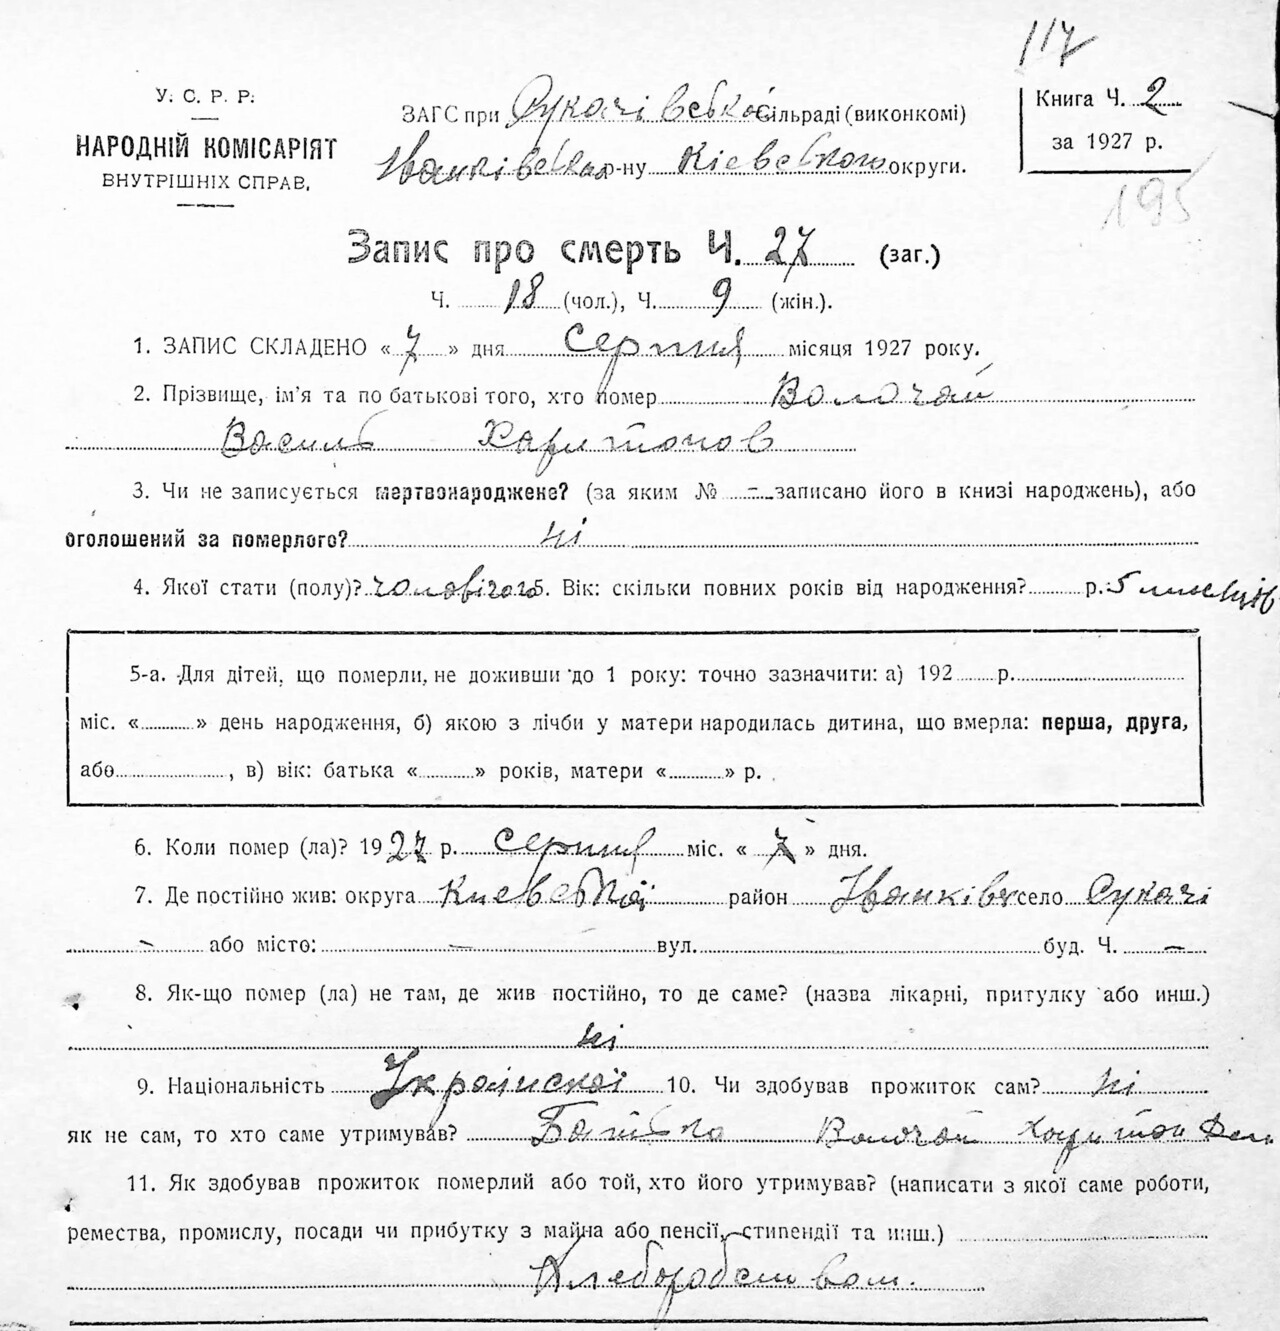 117
У. С. Р. Р.
НАРОДНІЙ КОМІСАРІЯТ
ВНУТРІШНІХ СПРАВ.
ЗАГС при Сукачівської сільраді (виконкомі)
Іванківська р-ну Кіевськой округи.
Книга Ч. 2
за 1927 р.
195
Запис про смерть Ч. 27 (заг.)
Ч. 18 (чол.), Ч. 9 (жін.).
1. ЗАПИС СКЛАДЕНО « 7 » дня Серпня місяця 1927 року.
2. Прізвище, ім'я та по батькові того, хто помер Волочай
Василь Харитонов
3. Чи не записується мертвонароджене? (за яким № - записано його в книзі народжень), або
оголошений за померлого? ні
4. Якої стати (полу)? чоловічого 5. Вік: скільки повних років від народження? р. 5 місяців
5-а. Для дітей, що померли, не доживши до 1 року: точно зазначити: а) 192 р.
міс. « » день народження, б) якою з лічби у матери народилась дитина, що вмерла: перша, друга,
або , в) вік: батька « » років, матери « » р.
6. Коли помер (ла)? 1927 р. серпня міс. « 7 » дня.
7. Де постійно жив: округа Киевської район Іванків село Сукачі
- або місто: - вул. буд. Ч. -
8. Як-що помер (ла) не там, де жив постійно, то де саме? (назва лікарні, притулку або инш.)
ні
9. Національність Українскої 10. Чи здобував прожиток сам? ні
як не сам, то хто саме утримував? Батько Волочай Харитон
11. Як здобував прожиток померлий або той, хто його утримував? (написати з якої саме роботи,
ремества, промислу, посади чи прибутку з майна або пенсії, стипендії та инш.)
Хлеборобством.